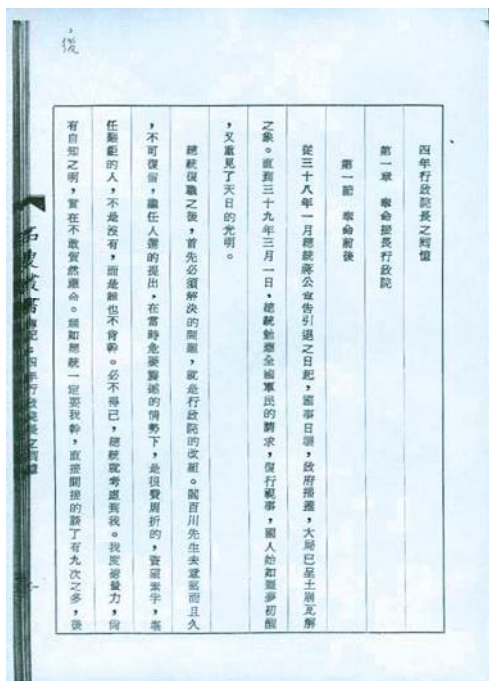 四年行政院長之回憶
第一章　奉命接長行政院
第一節　奉命前後
從三十八年一月總統蔣公宣告引退之日起，國事日壞，政府播遷，大局已呈土崩瓦解
之象。直到三十九年三月一日，總統勉應全國軍民的請求，復行視事，國人始如噩夢初醒
，又重見了天日的光明。
總統復職之後，首先必須解決的問題，就是行政院的改組。閻百川先生去意堅而且久
，不可復留，繼任人選的提出，在當時危疑震撼的情勢下，是很費周折的，資望素孚，堪
任艱鉅的人，不是沒有，而是誰也不肯幹。必不得已，總統就考慮到我。我度德量力，尚
有自知之明，實在不敢貿然應命。無如總統一定要我幹，直接間接的談了有九次之多，後
石叟叢書
傳記：四年行政院長之回憶
一
後